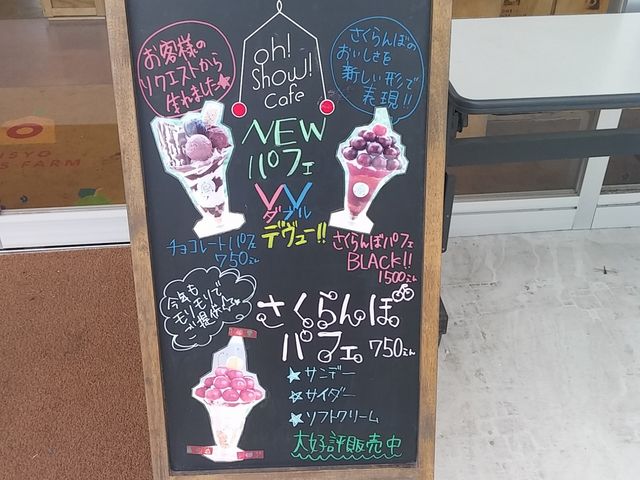 お客様の
リクエストから
生れました★
oh!
Show!
Cafe
さくらんぼの
おいしさを
新しい形で
表現!!
NEW
パフェ
ダブル
デヴュー!!
チョコレートパフェ
750えん
さくらんぼパフェ
BLACK!!
1500えん
今年も
モリモリで
ご提供!!
さくらんぼ
パフェ 750えん
★サンデー
☆サイダー
★ソフトクリーム
大好評販売中
SYO
S FARM